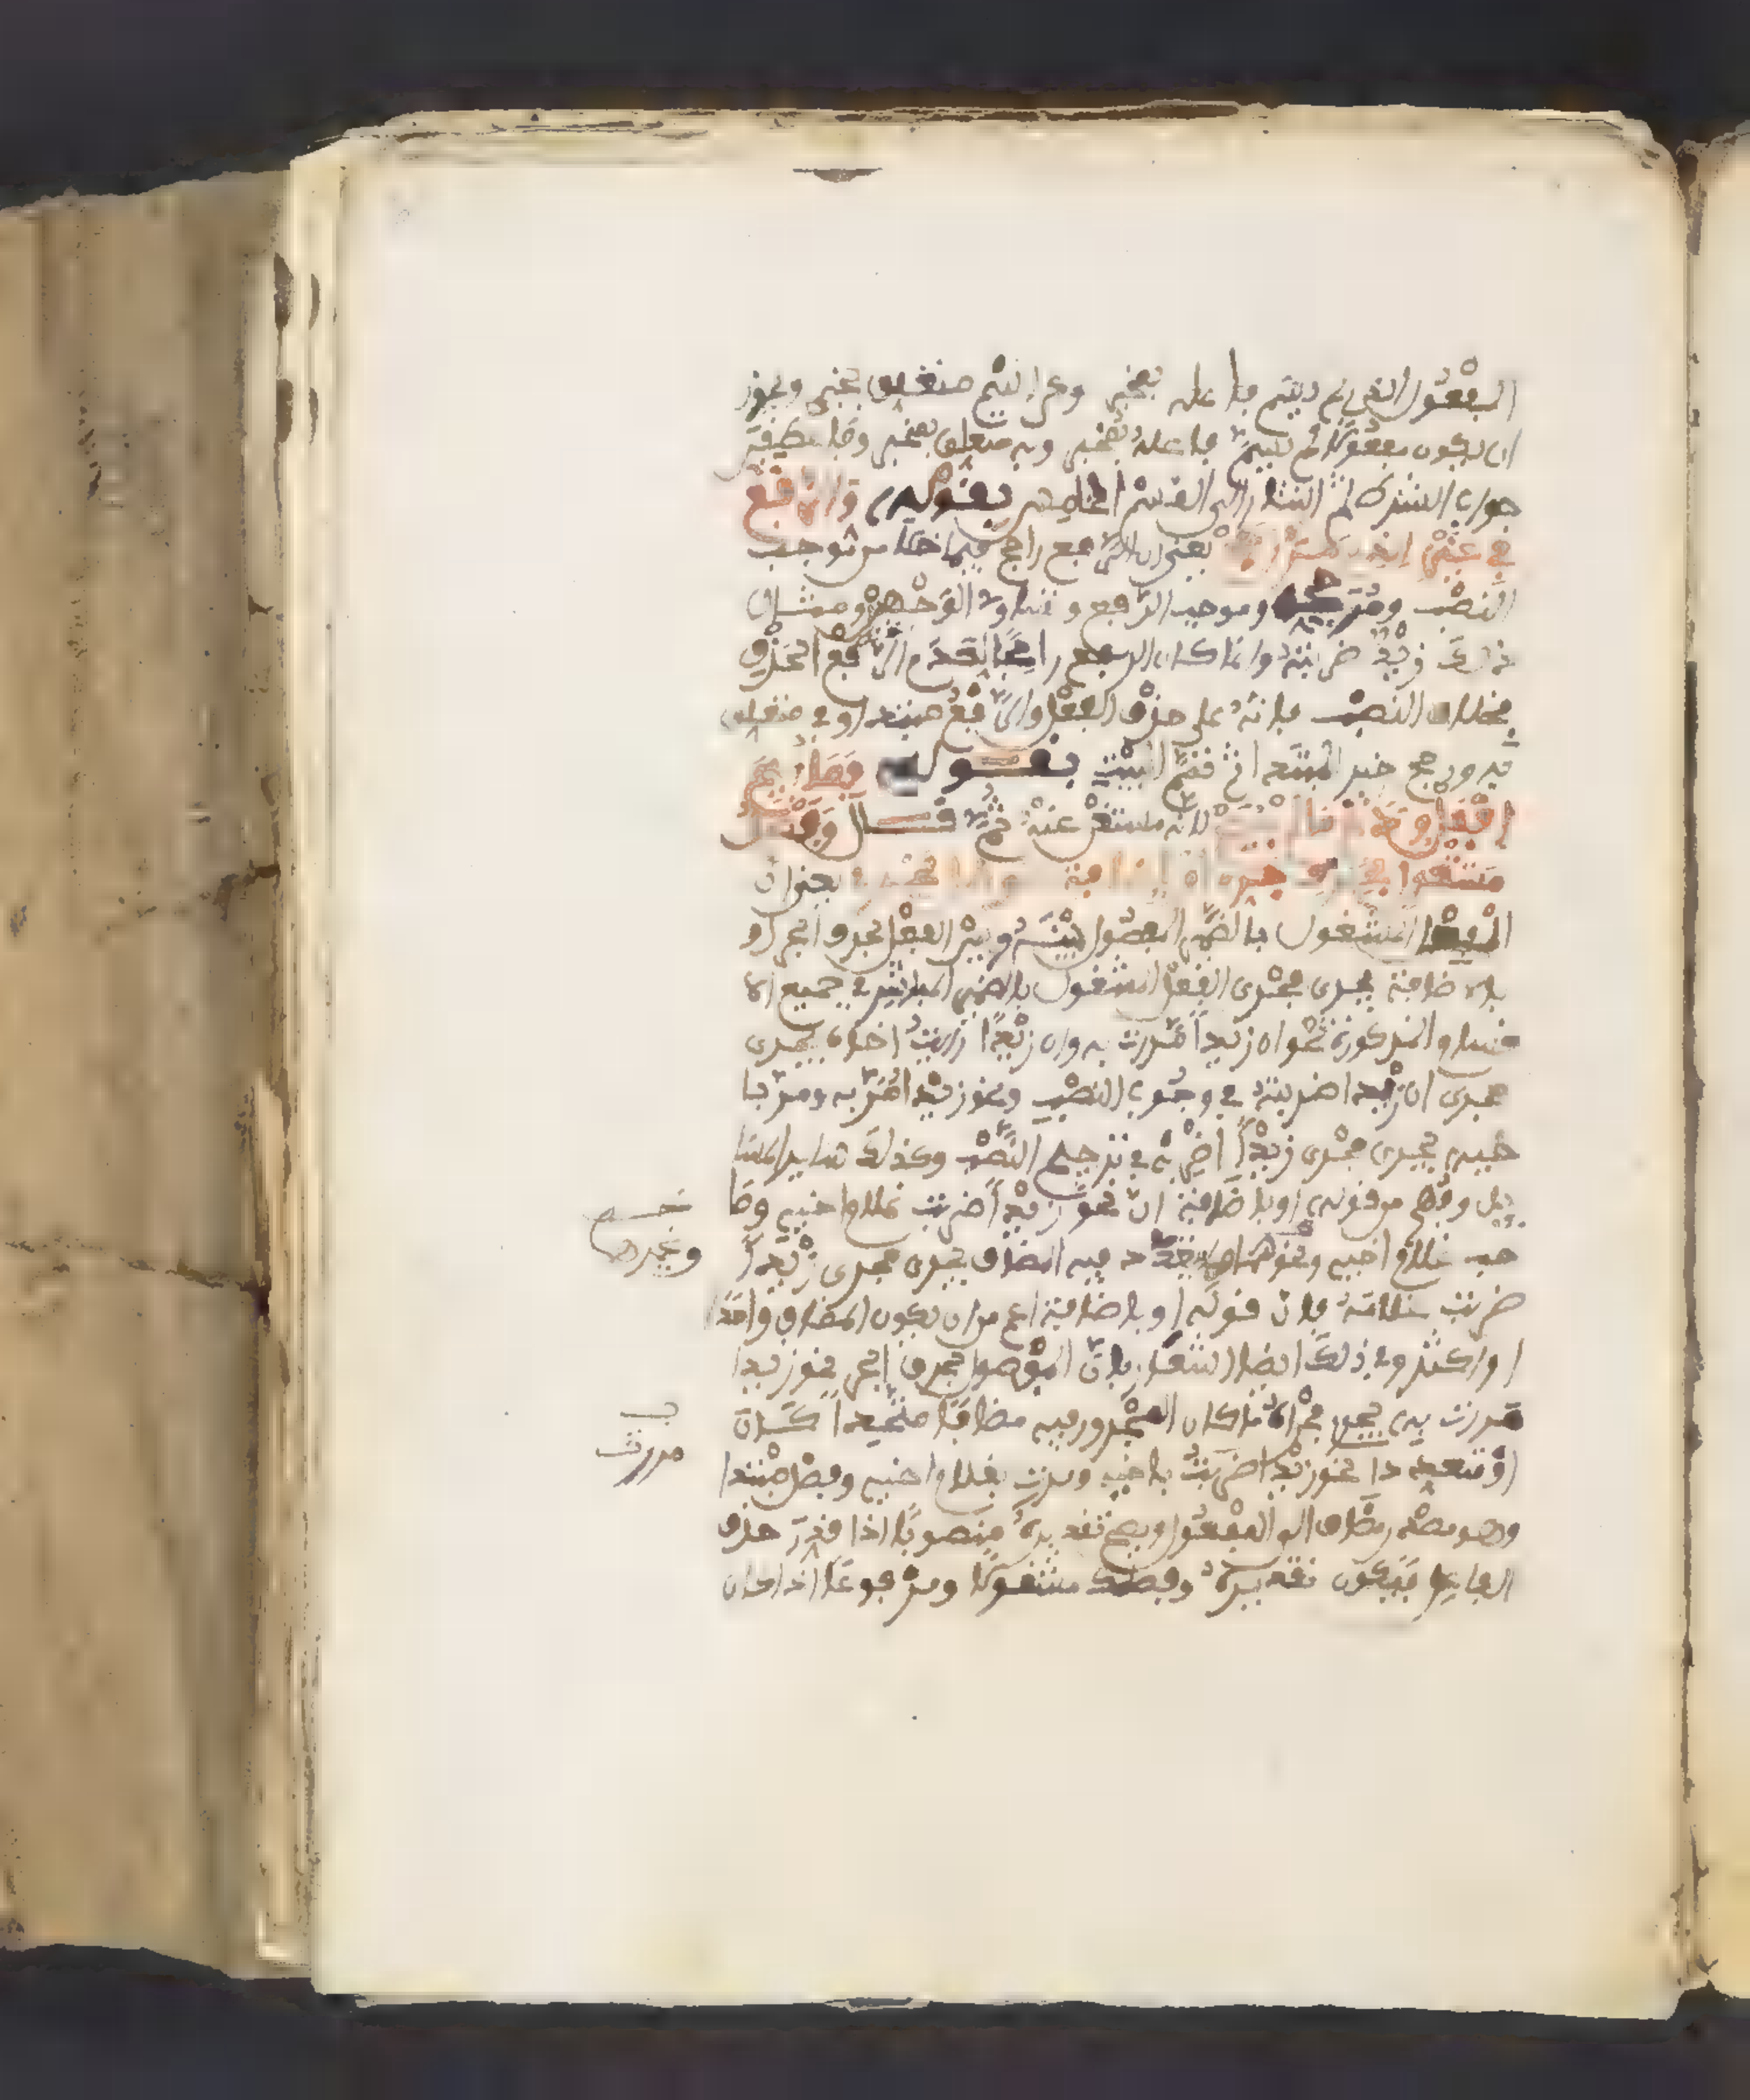 المفعول الذي لم يسم فاعله بمخبر وعن اسم متعلق بمخبر ويجوز
ان يكون مفعولا لم يسم فاعله بمخبر وبه متعلق بمخبر وما تصيفت
جواب الشرط ثم اشار الى القسم الخامس بقوله والرفع
في غير الذي مر رجح يعني ان الرفع راجح فيما خلا من موجب
النصب ومرجحه وموجب الرفع وتساوي الوجهين ومثال
ذلك زيد ضربته وانما كان الرفع راجحا لعدم الحذف
بخلاف النصب فانه على حذف الفعل والرفع مبتدا وفي متعلق
به ورجح خبر المبتدا ثم تمم البيت بقوله فما ابيح
افعل ودع ما لم يبح لانه مستغن عنه ثم قال وفصل
مشغول بحرف جر او باضافة كوصل يجري يعني ان
الفعل المشغول بالضمير المفصول بينه وبين الفعل بحرف الجر او
بالاضافة يجري مجرى الفعل المشغول بالضمير المباشر في جميع الا
قسام المذكورة نحو ان زيدا مررت به وان زيدا رايت اخاه يجري
مجرى ان زيدا ضربته في وجوب النصب ونحو زيدا امرر به ومر با
خيه يجري مجرى زيدا اضربه في ترجيح النصب وكذلك سائر المسا
يل وفهم من قوله او باضافة ان نحو زيدا ضربت غلام اخيه وصا
حب غلام اخيه ونحوهما مما تعدد فيه المضاف يجري مجرى زيدا
ضربت غلامه فان قوله او باضافة اعم من ان يكون المضاف واحدا
او اكثر وفي ذلك ايضا اشعار بان المفصول بحرف الجر نحو زيدا
مررت به يجري مجراه ما كان المجرور فيه مضافا متحدا كان
او متعددا نحو زيدا ضربت باخيه ومررت بغلام اخيه وفصل مبتدا
وهو مصدر مضاف الى المفعول ويصح تقديره منصوبا اذا قدر حذف
الفاعل فيكون تقديره وفصلك مشغولا ومرفوعا اذا كان
وغيرها
ب
مررت